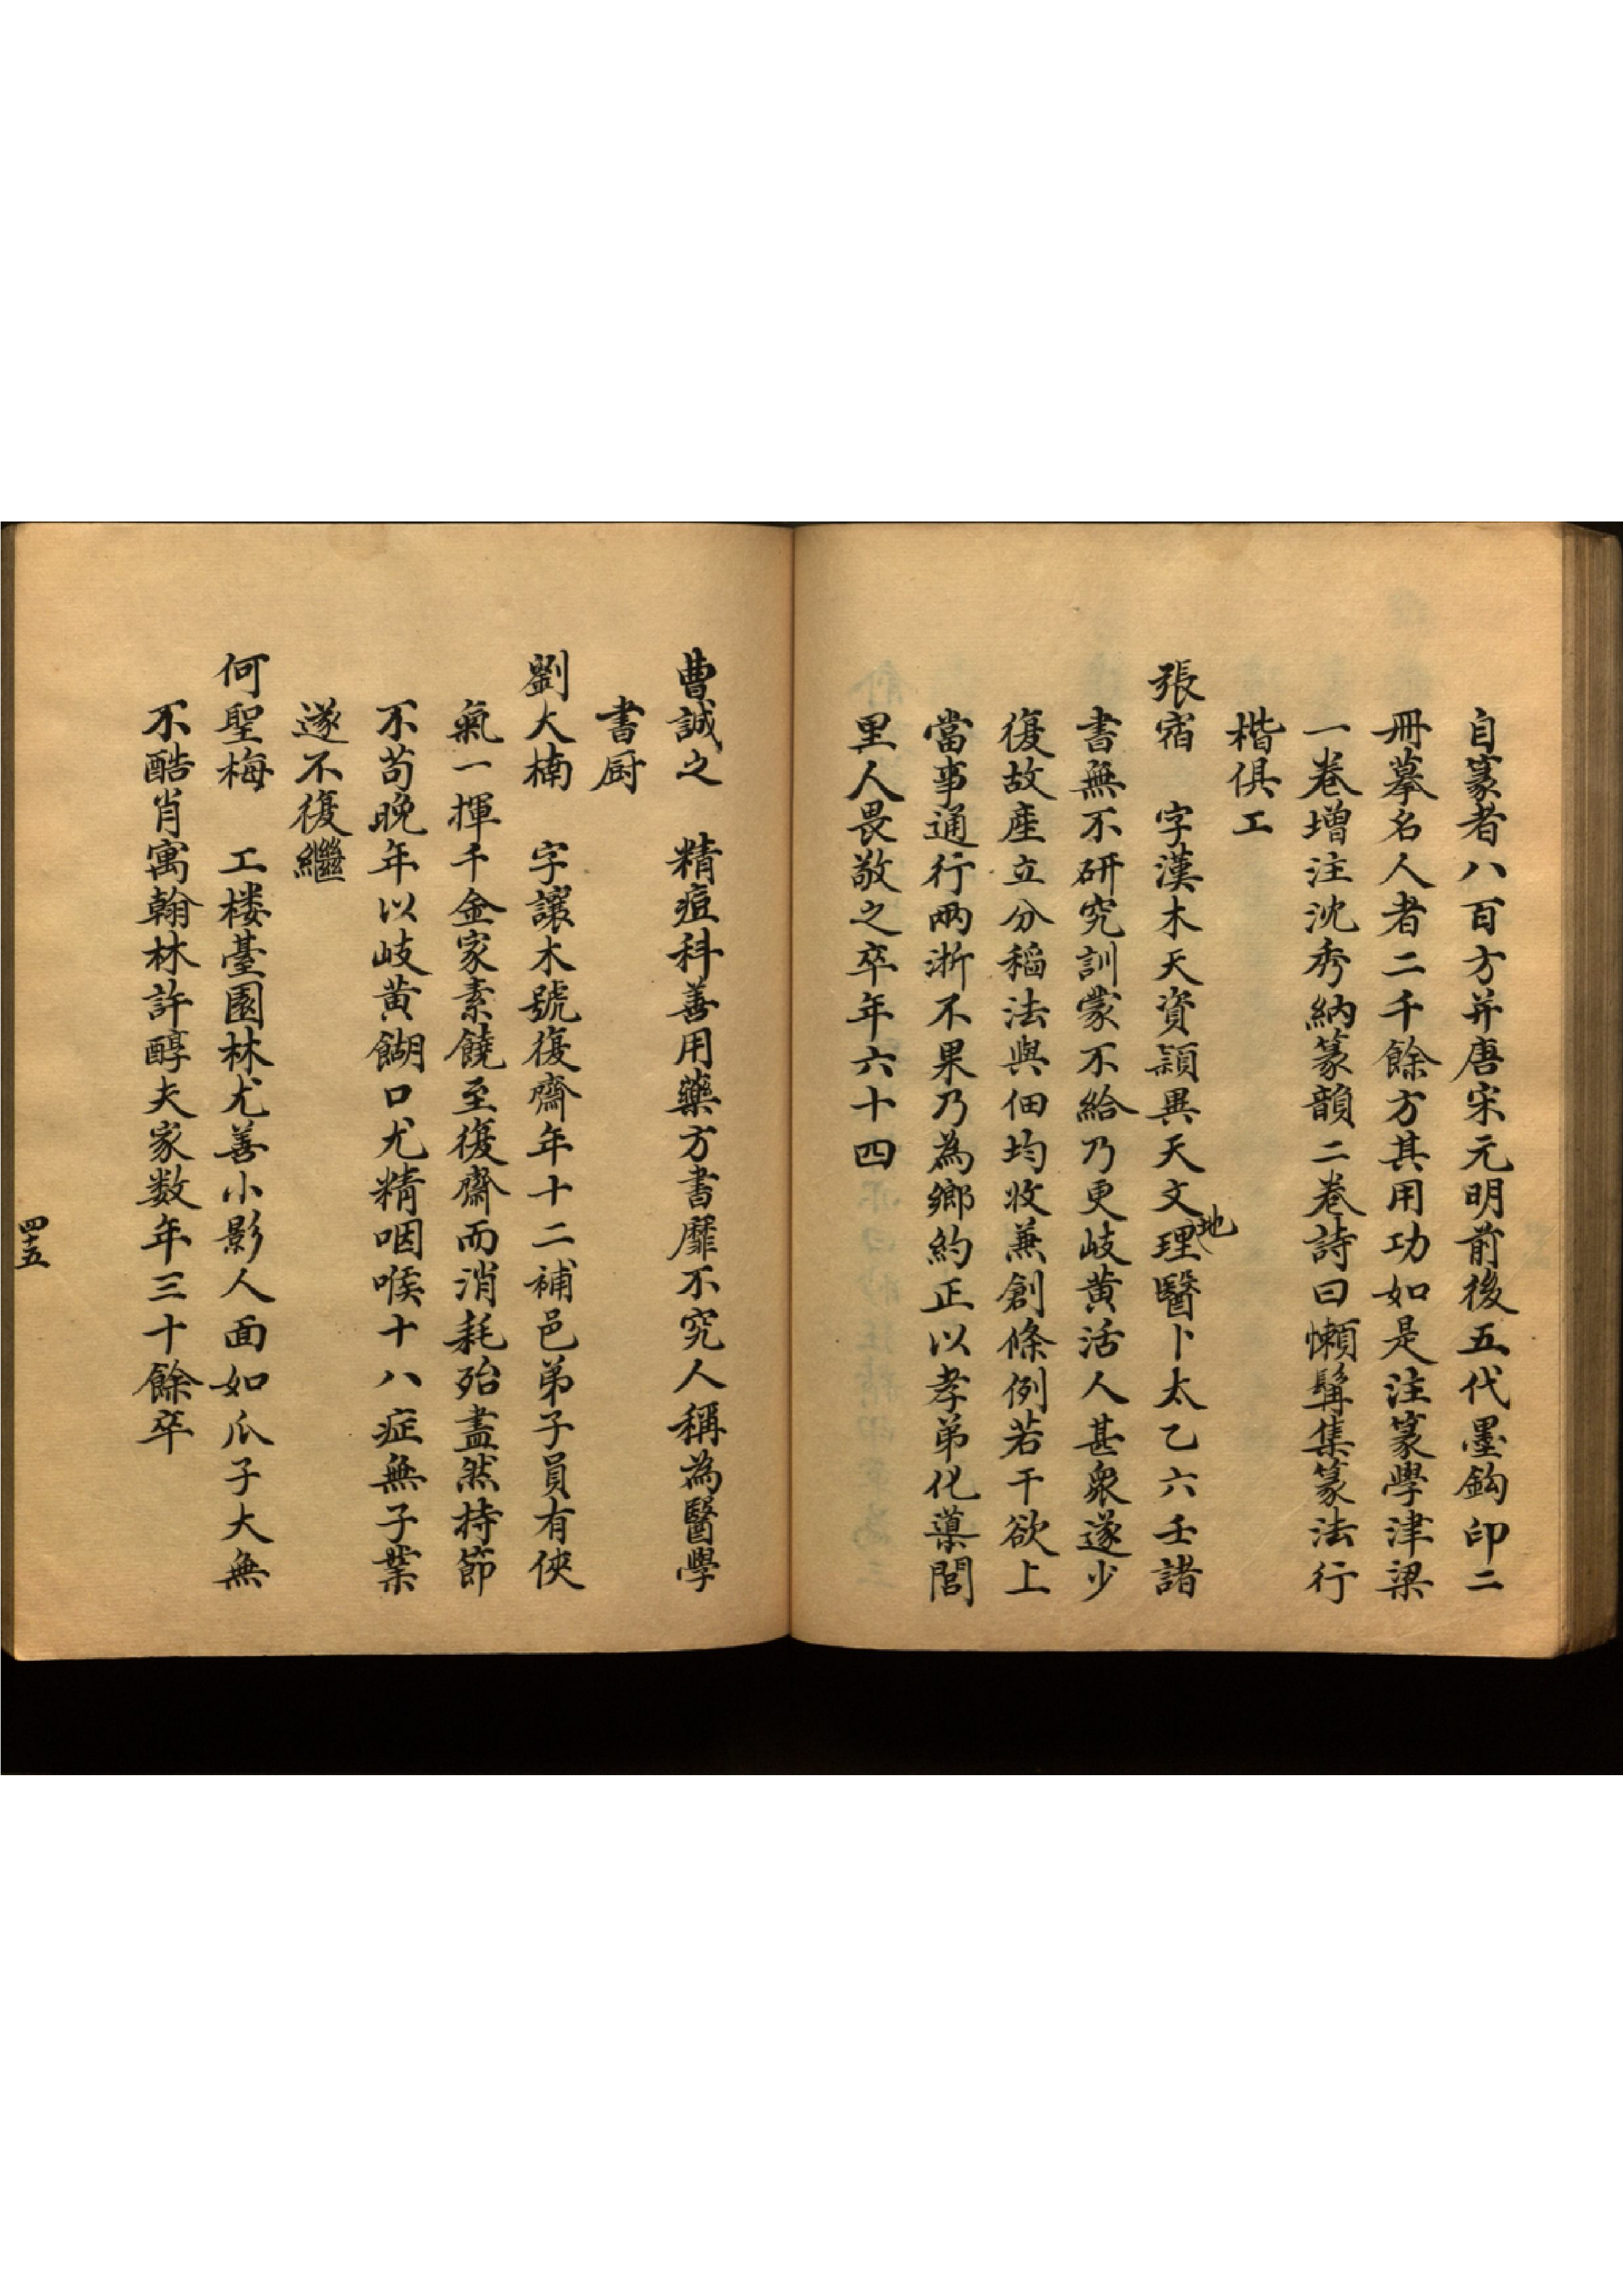 自篆者八百方并唐宋元明前後五代墨鈎印二
冊摹名人者二千餘方其用功如是注篆學津梁
一卷增注沈秀納篆韻二卷詩曰懶髯集篆法行
楷俱工
張宿　字漢木天資穎異天文地理醫卜太乙六壬諸
書無不研究訓蒙不給乃更岐黃活人甚衆遂少
復故產立分稻法與佃均收兼創條例若干欲上
當事通行兩浙不果乃為鄉約正以孝弟化導閭
里人畏敬之卒年六十四
曹誠之　精痘科善用藥方書靡不究人稱為醫學
書厨
劉大楠　字讓木號復齋年十二補邑弟子員有俠
氣一揮千金家素饒至復齋而消耗殆盡然持節
不苟晚年以岐黃餬口尤精咽喉十八症無子業
遂不復繼
何聖梅　工楼臺園林尤善小影人面如瓜子大無
不酷肖寓翰林許醇夫家数年三十餘卒
四十五